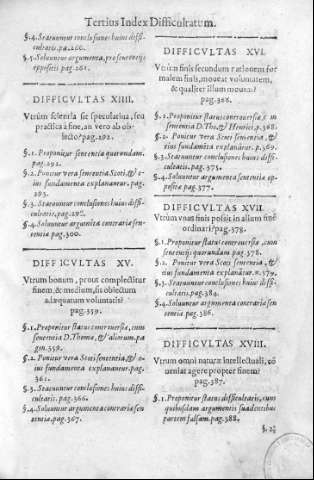 Tertius Index Difficultatum.
§.4. Statuuntur conclusiones huius diffi-
cultatis. pa.260.
§.5. Soluuntur argumenta, pro sententijs
oppositis pag.261.
DIFFICVLTAS XIIII.
Vtrum scientia sit speculatiua, seu
practica à fine, an vero ab ob-
iecto? pag.292.
§.1. Proponitur sententia quorundam.
pag.292.
§.2. Ponitur vera sententia Scoti, & e-
ius fundamenta explananeur. pag.
293.
§.3. Statuuntur conclusiones huius diffi-
cultatis, pag.298.
§.4. Soluuntur argumenta contraria sen-
tentia pag.300.
DIFFICVLTAS XV.
Vtrum bonum, prout complectitur
finem, & medium, sit obiectum
adæquatum voluntatis?
pag.359.
§.1. Proponitur status controuersiæ, cum
sententia D. Thomæ, & aliorum. pa
gin.359.
§.2. Ponitur vera Scoti sententia, & e-
ius fundamenta explananeur. pag.
361.
§.3. Statuuntur conclusiones huius diffi-
cultatis. pag.366.
§.4. Soluuntur argumenta contraria sen-
tentia pag.367.
DIFFICVLTAS XVI.
Vtrum finis secundum rationem for
malem finis, moueat voluntatem,
& qualiter illum moueat?
pag.368.
§.1. Proponitur status controuersiæ, cum
sententia D. Tho. & Henrici. p.368.
§.2. Ponitur vera Scoti sententia, &
eius fundamenta explanãtur. p.369.
§.3. Statuuntur conclusiones huius diffi-
cultatis. pag.375.
§.4. Soluuntur argumenta sententia op-
posita pag.377.
DIFFICVLTAS XVII.
Vtrum vnus finis possit in alium fine
ordinari? pag.378.
§.1. Proponitur status controuersiæ, cum
sententijs quorundam. pag.378.
§.2. Ponitur vera Scoti sententia, &
eius fundamenta explanãtur. p.379.
§.3. Statuuntur conclusiones huius diffi-
cultatis. pag.384.
§.4. Soluuntur argumenta contraria sen
tentia pag.386.
DIFFICVLTAS XVIII.
Vtrum omni naturæ intellectuali, cõ
ueniat agere propter finem?
pag.387.
§.1. Proponitur status difficultatis, cum
quibusdam argumentis suadentibus
partem falsam. pag.388.
§.2.